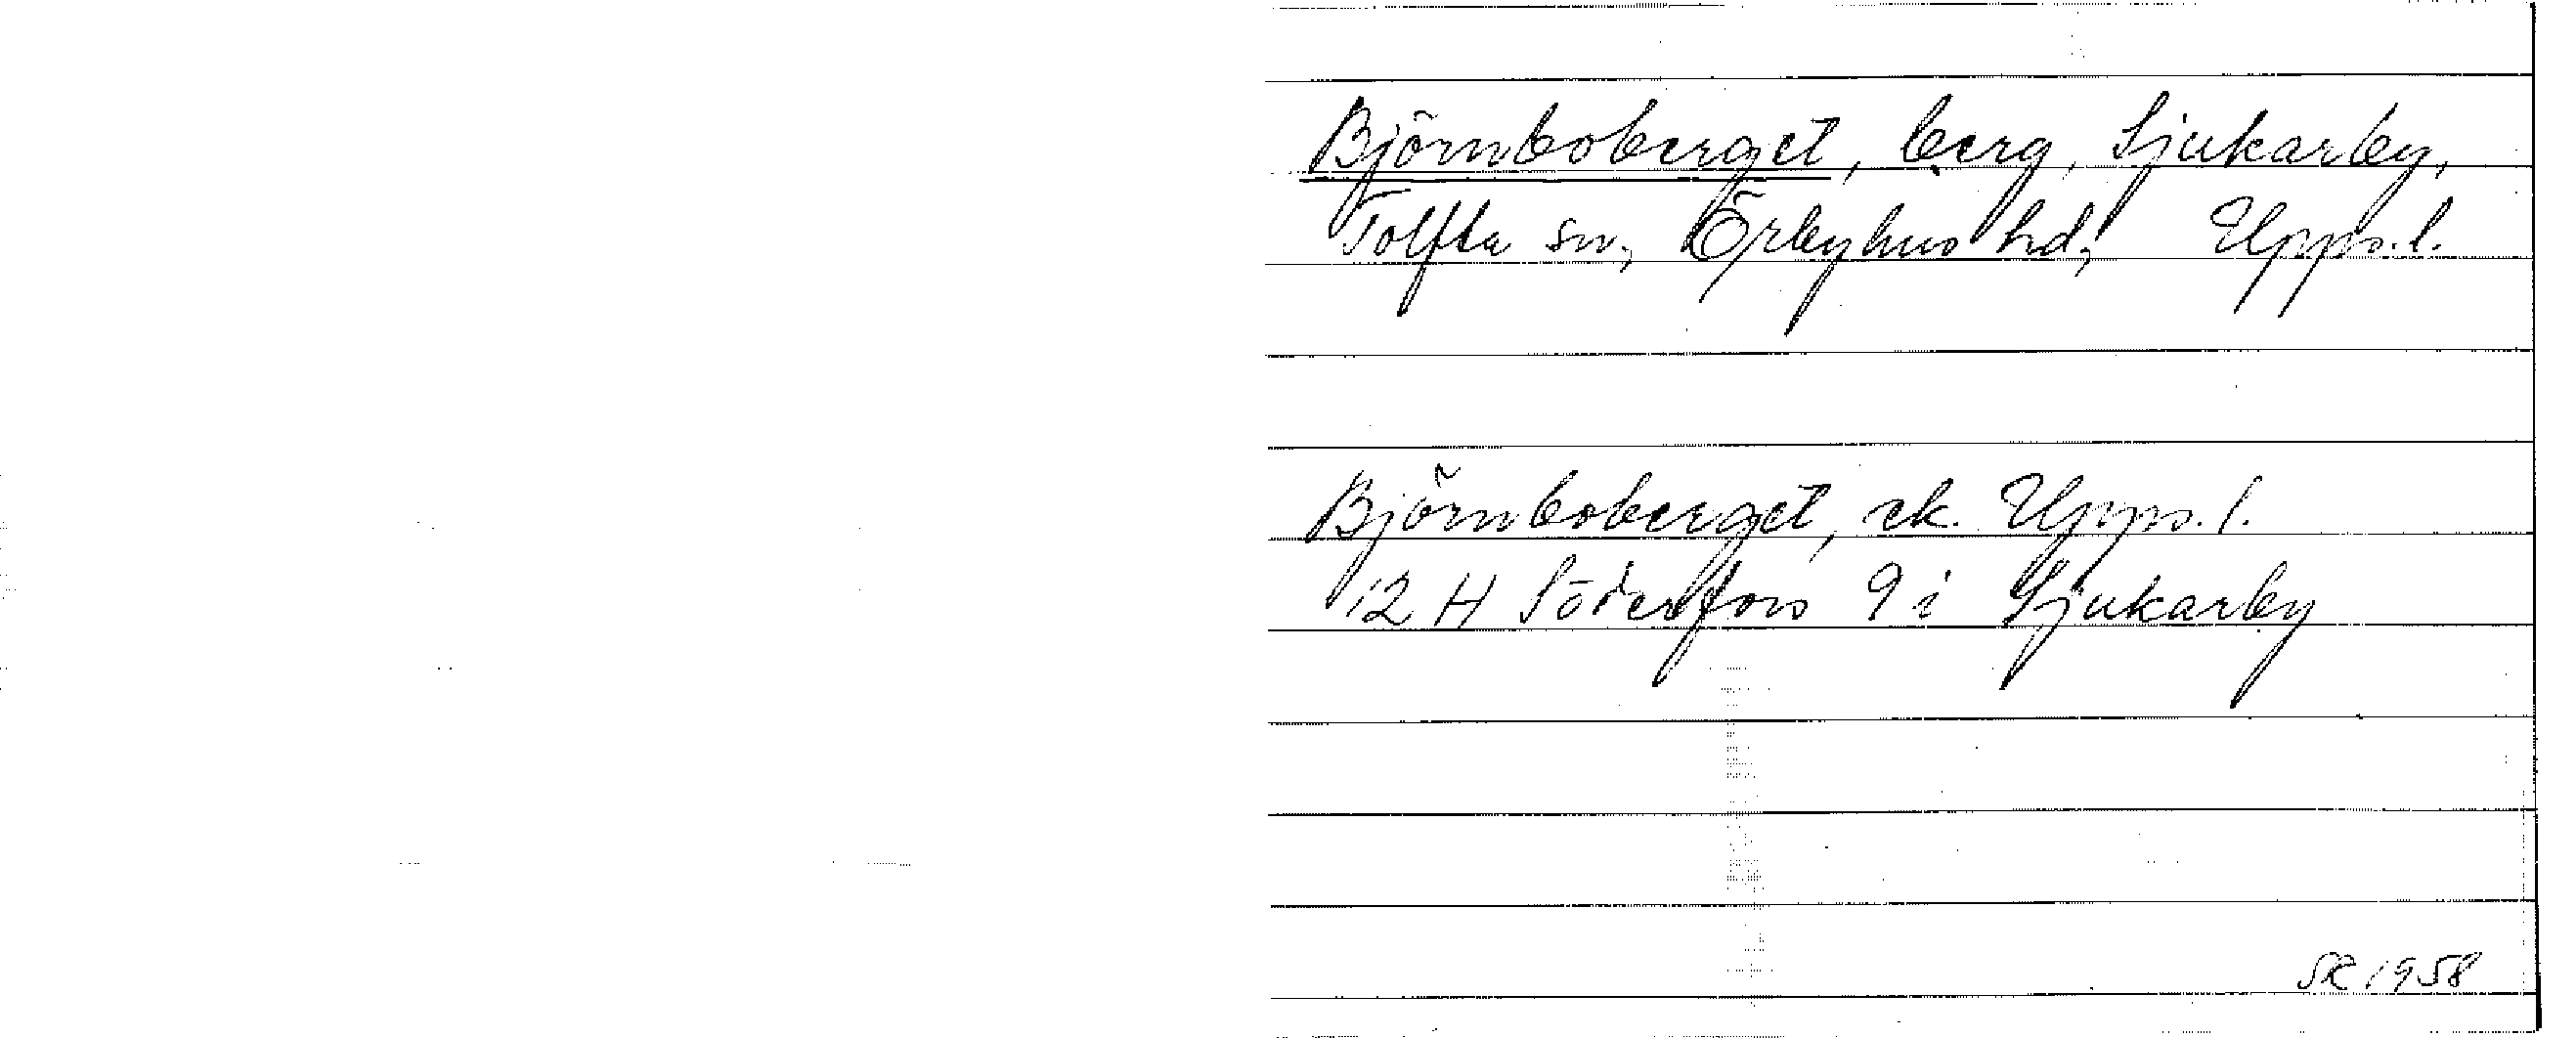 Björnboberget, berg, Sjukarby,
Tolfta sn, Örbyhus hd, Upps. l.
Björnboberget, ek. Upps. l.
12 H Söderfors 9 i Sjukarby
SR 1958